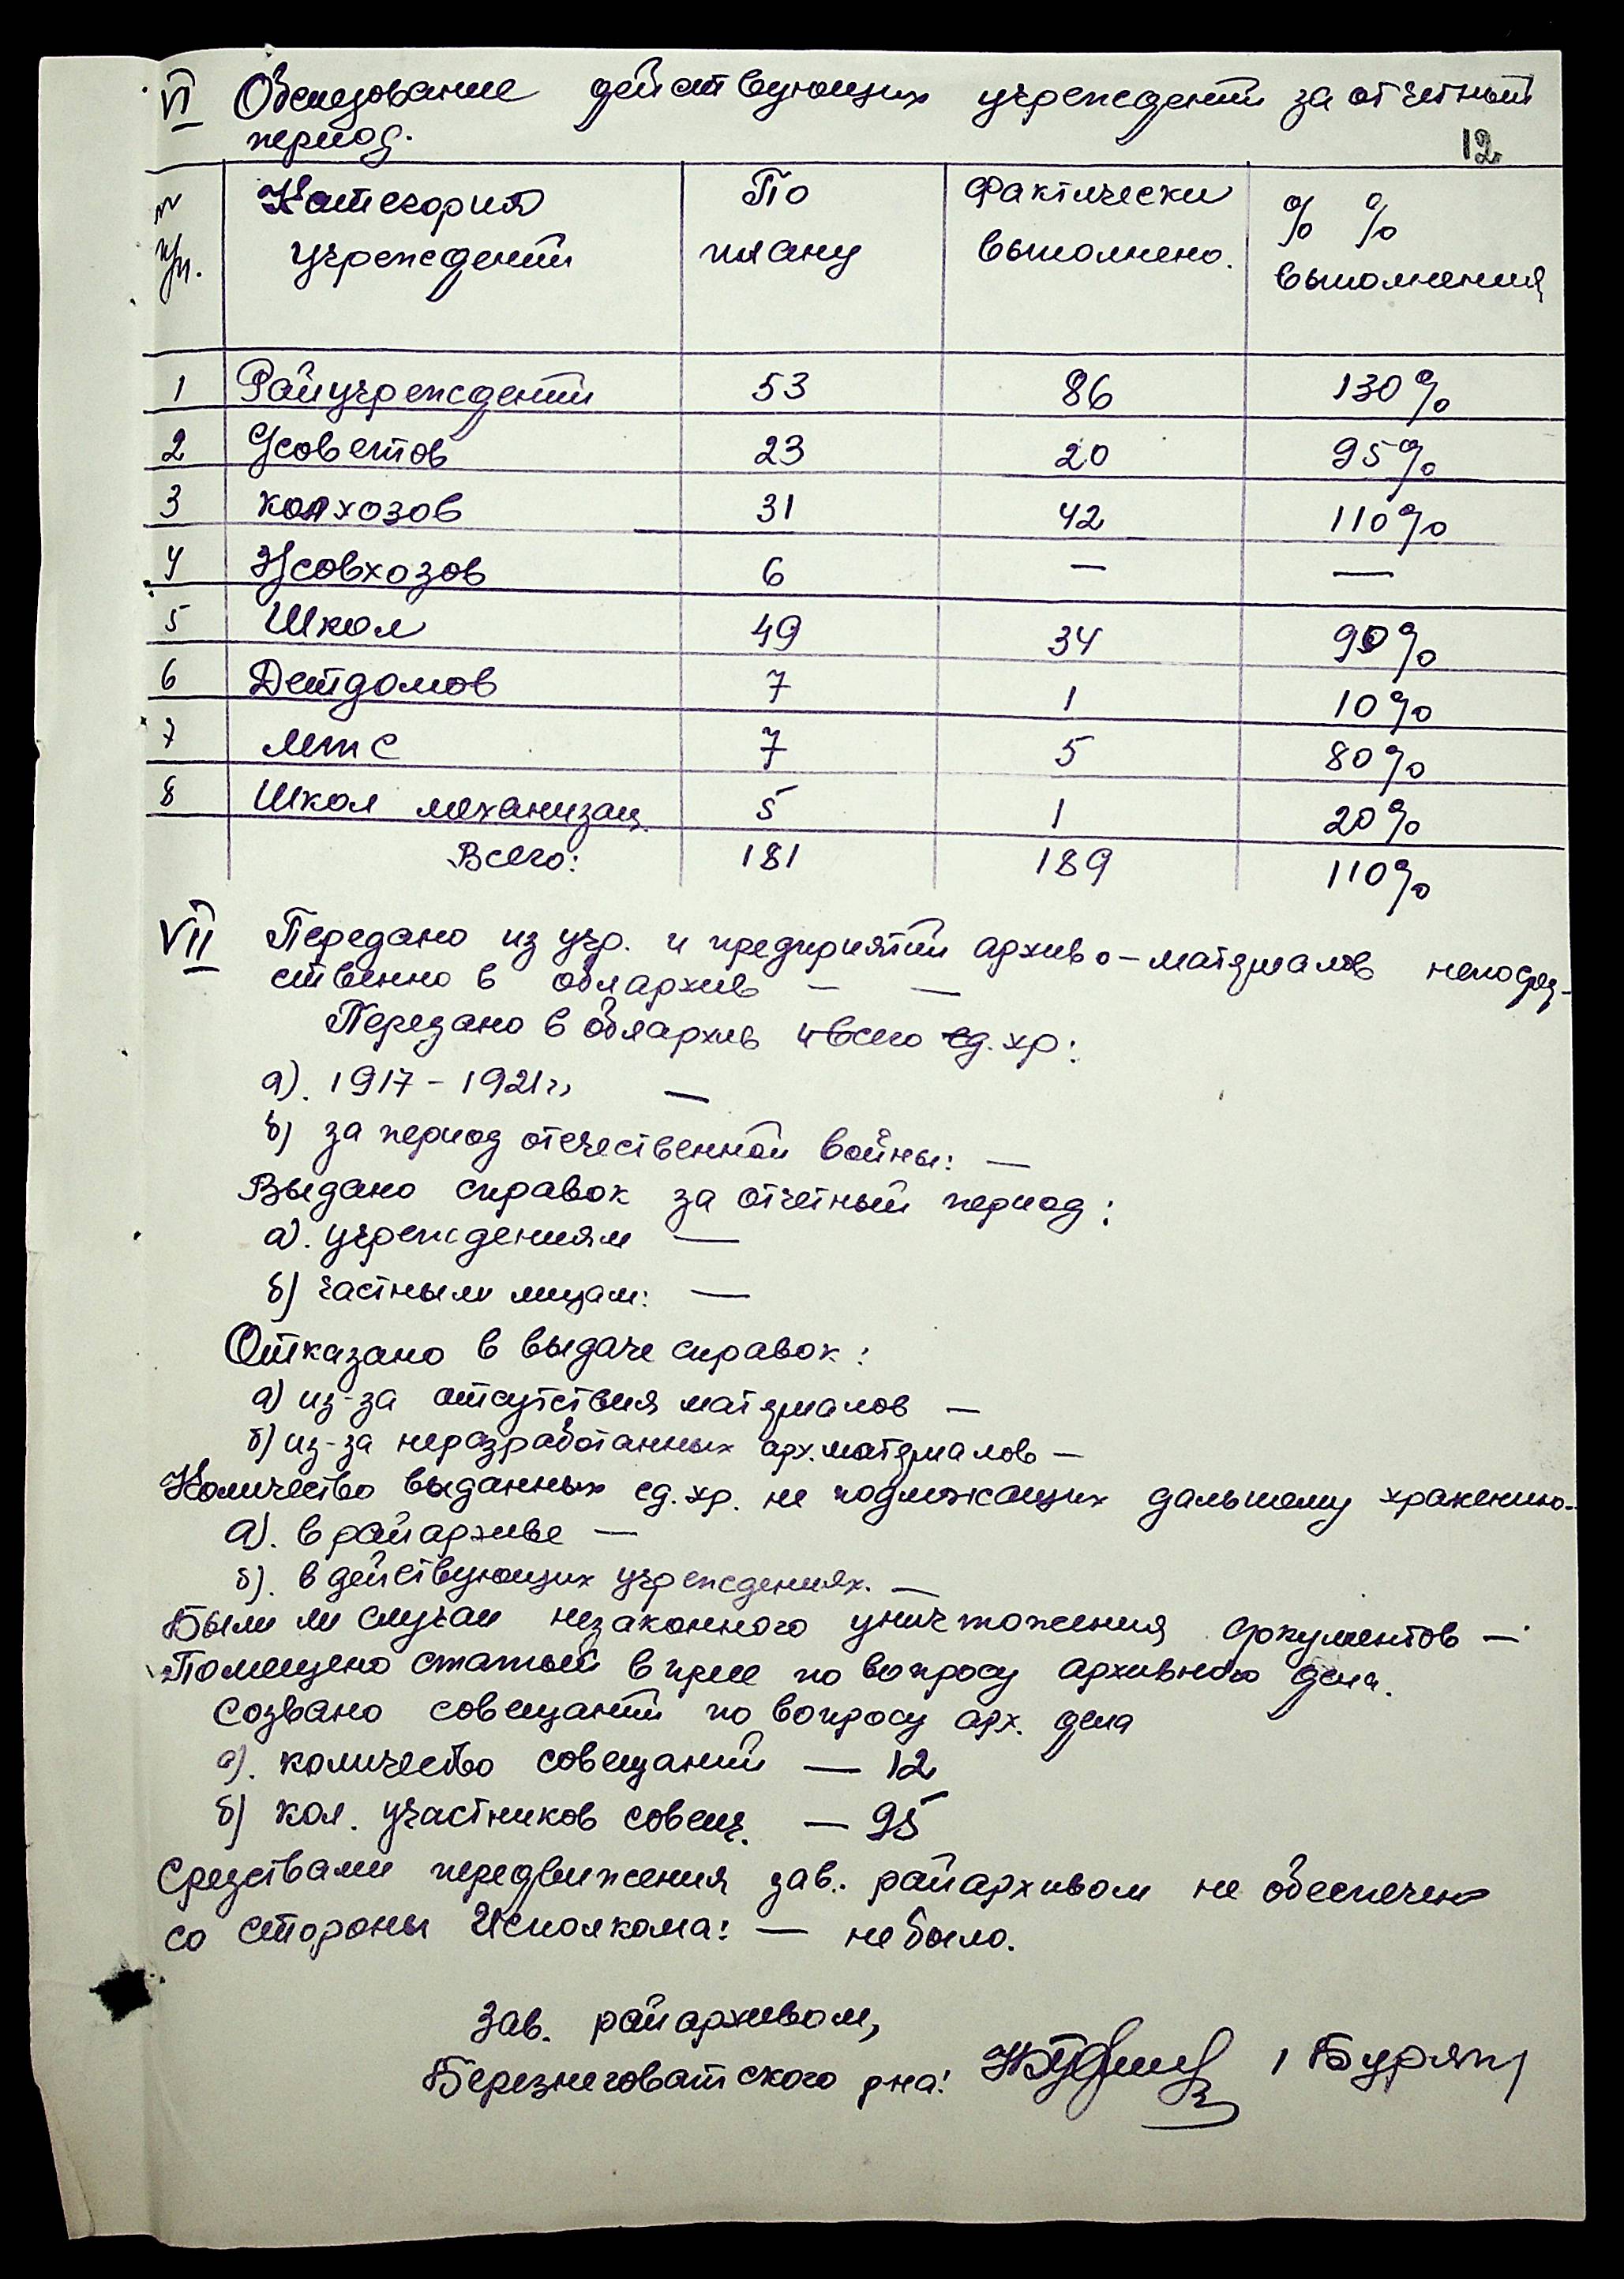 VI Обследование действующих учреждений за отчетный
период.
12
№ п/п. Категория учреждений По плану Фактически выполнено. % % выполнения
1 Райучреждений 53 86 130%
2 С/советов 23 20 95%
3 колхозов 31 42 110%
4 совхозов 6 — —
5 Школ 49 34 90%
6 Детдомов 7 1 10%
7 мтс 7 5 80%
8 Школ механизац. 5 1 20%
Всего: 181 189 110%
VII Передано из учр. и предприятий архиво-материалов непосред-
ственно в облархив — —
Передано в облархив всего ед. хр:
а). 1917 - 1921 г. —
б) за период отечественной войны: —
Выдано справок за отчетный период:
а). учреждениям —
б) частным лицам: —
Отказано в выдаче справок:
а) из-за отсутствия материалов —
б) из-за неразработанных арх. материалов —
Количество выданных ед. хр. не подлежащих дальшему хранению.
а). в райархиве —
б). в действующих учреждениях. —
Были ли случаи незаконного уничтожения документов —
Помещено статьей в прессе по вопросу архивного дела.
Созвано совещаний по вопросу арх. дела
а). количество совещаний — 12
б) кол. участников совещ. — 95
Средствами передвижения зав. райархивом не обеспечено
со стороны Исполкома: — не было.
Зав. райархивом,
Березнеговатского р-на: / Буряк /